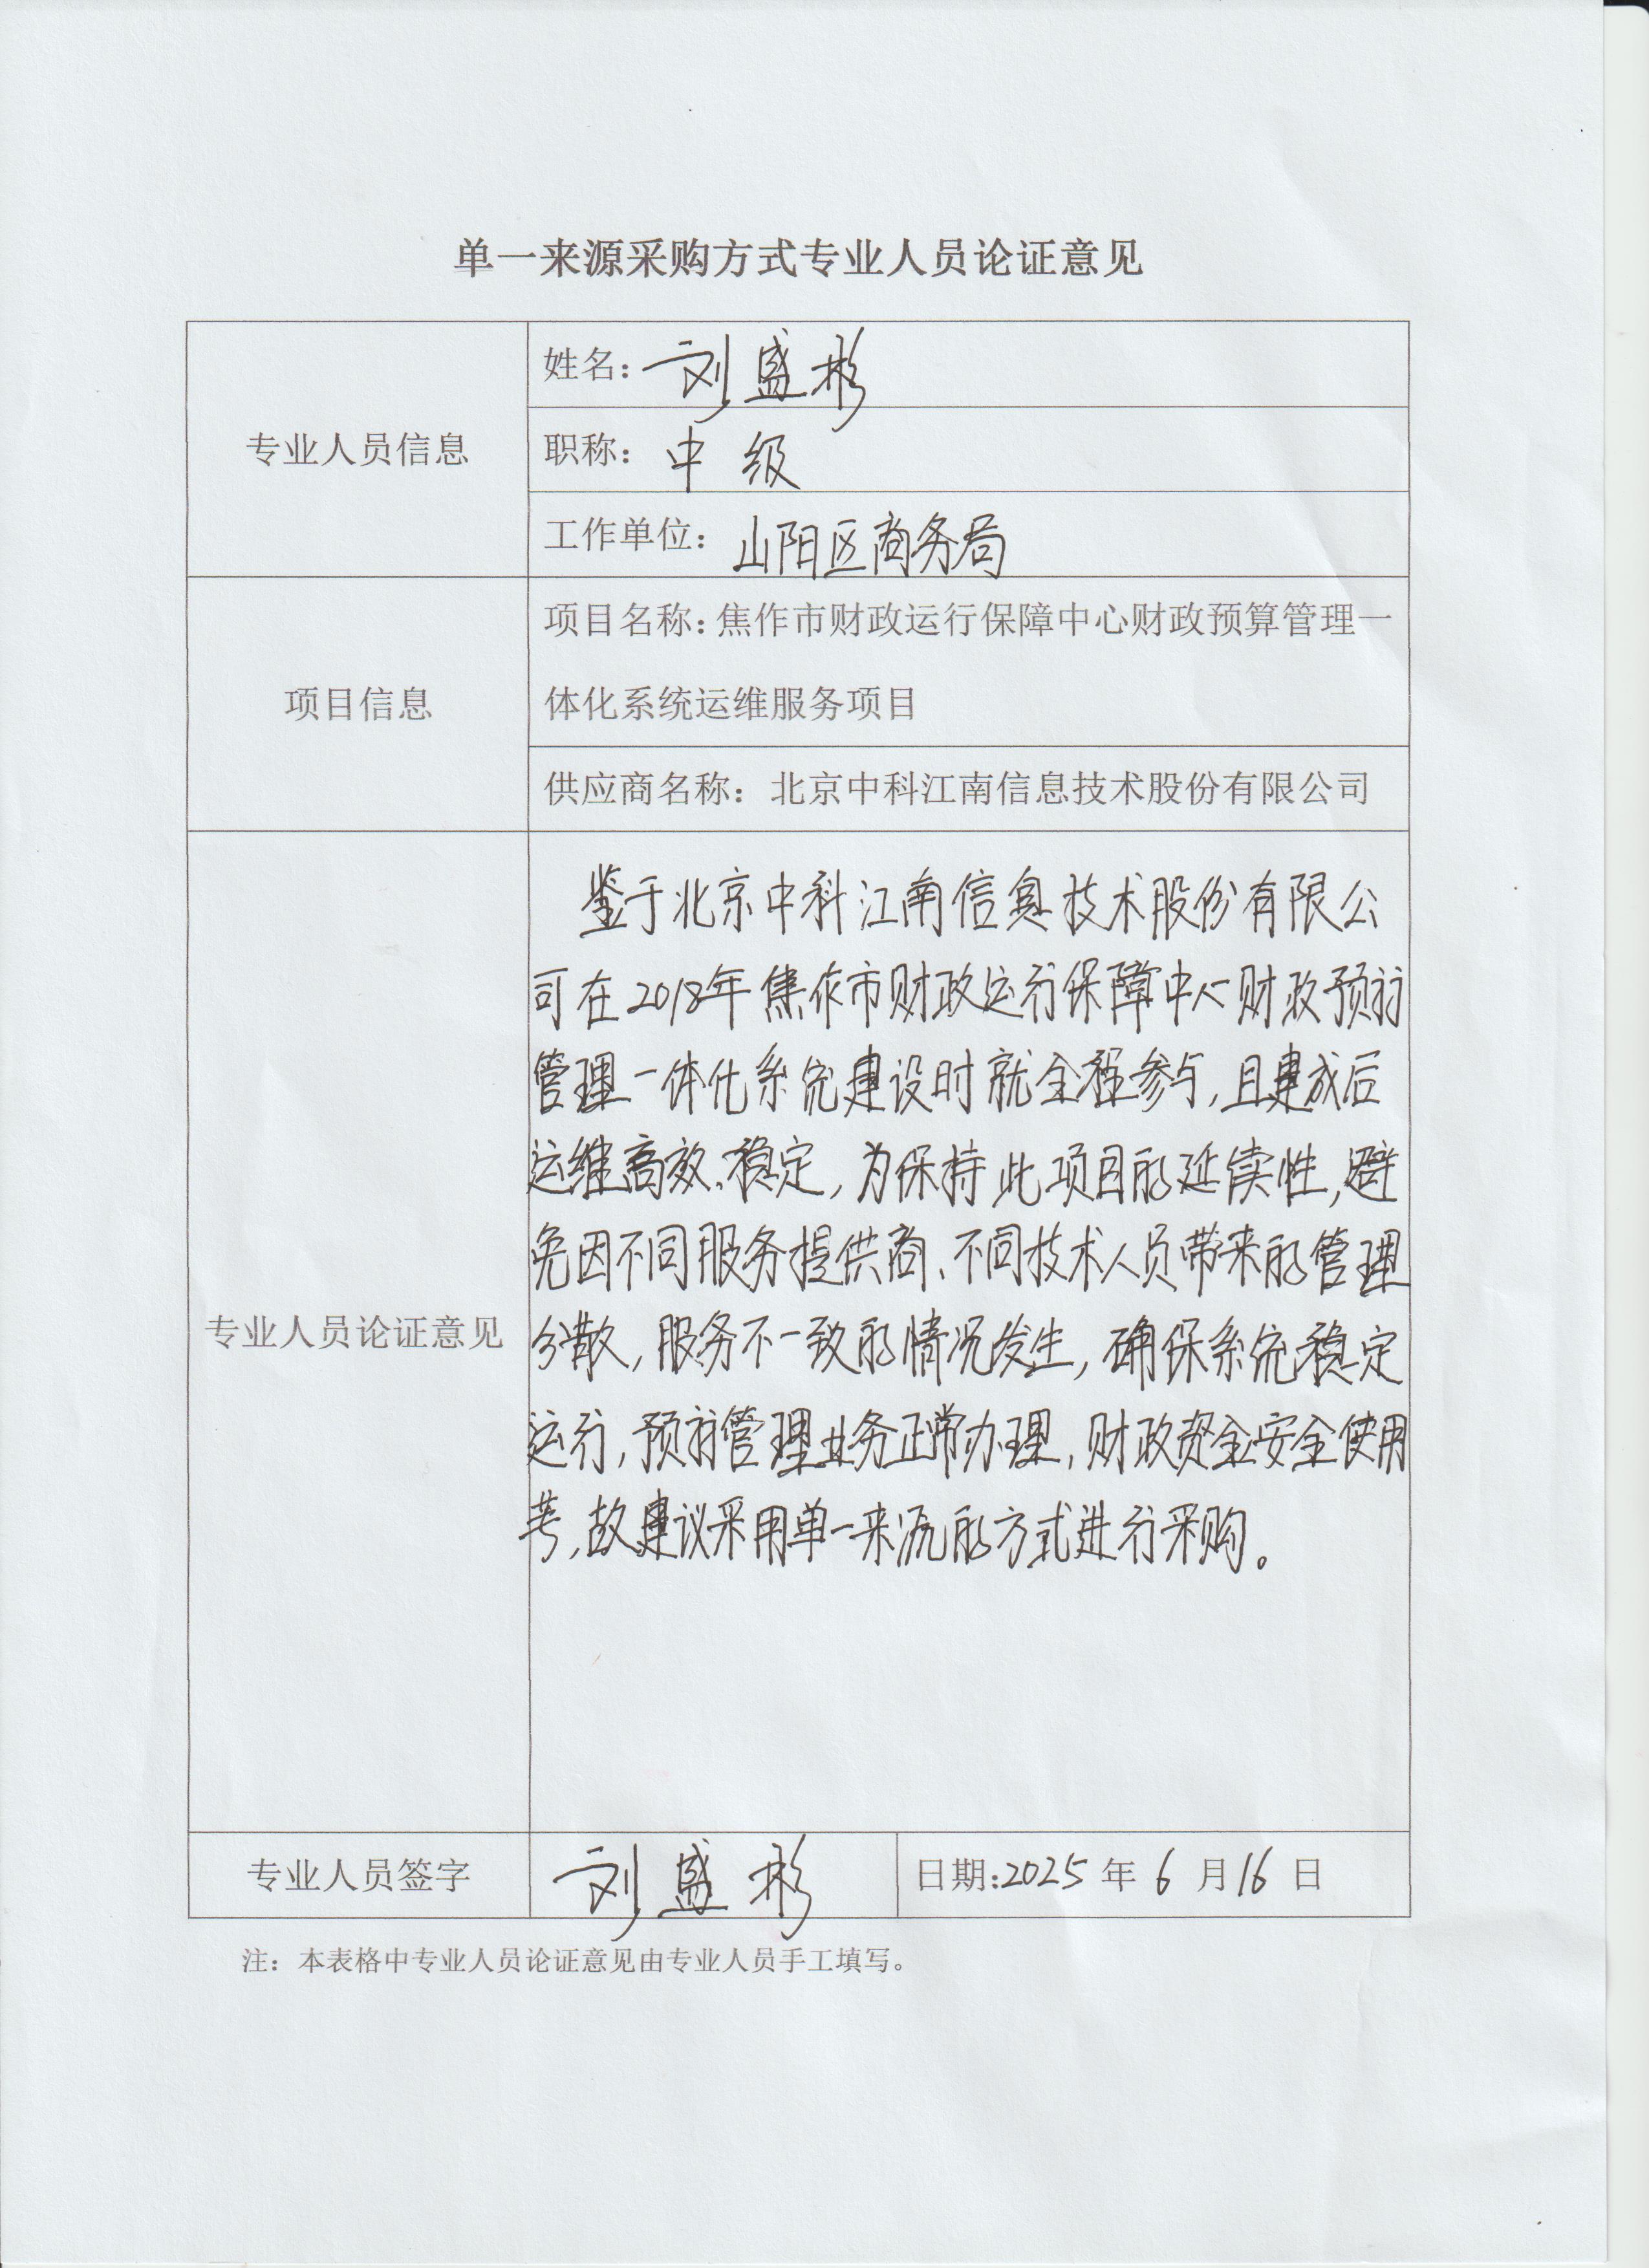 单一来源采购方式专业人员论证意见
专业人员信息
姓名：刘盛彬
职称：中级
工作单位：山阳区商务局
项目信息
项目名称：焦作市财政运行保障中心财政预算管理一
体化系统运维服务项目
供应商名称：北京中科江南信息技术股份有限公司
专业人员论证意见
鉴于北京中科江南信息技术股份有限公
司在2018年焦作市财政运行保障中心财政预算
管理一体化系统建设时就全程参与,且建成后
运维高效、稳定,为保持此项目的延续性,避
免因不同服务提供商、不同技术人员带来的管理
分散,服务不一致的情况发生,确保系统稳定
运行,预算管理业务正常办理,财政资金安全使用
等,故建议采用单一来源的方式进行采购。
专业人员签字
刘盛彬
日期:2025年6月16日
注：本表格中专业人员论证意见由专业人员手工填写。